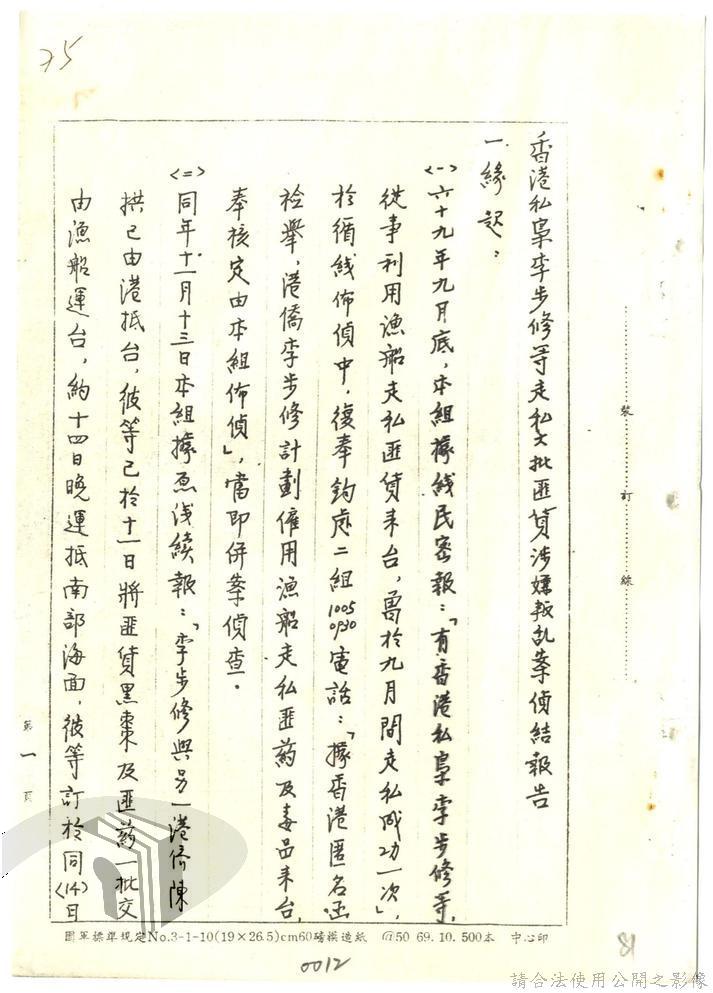 75
香港私梟李步修等走私大批匪貨涉嫌叛乱案偵結報告
一、緣起：
〈一〉六十九年九月底，本組據綫民密報：「有香港私梟李步修等，
從事利用漁船走私匪貨来台，曾於九月間走私成功一次」，
於循綫佈偵中，復奉鈞處二組1005 0930電話：「據香港匿名函
检舉，港僑李步修計劃僱用漁船走私匪药及毒品来台，
奉核定由本組佈偵」，當即併案偵查。
〈二〉同年十一月十三日本組據原线續報：「李步修與另一港僑陳
拱已由港抵台，彼等已於十一日將匪貨黑棗及匪药一批交
由漁船運台，約十四日晚運抵南部海面，彼等訂於同〈14〉日
裝 訂 線
第一頁
國軍標準規定No.3-1-10(19×26.5)cm60磅模造紙 @50 69.10.500本 中心印
0012
請合法使用公開之影像